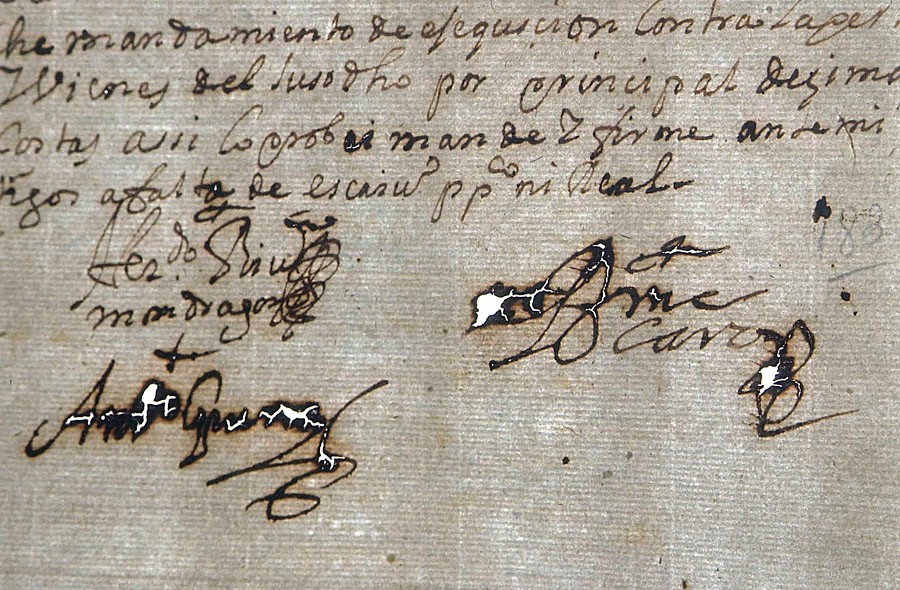 he mandamiento de esequsion Contra la per
Y Vienes del susodho por principal dezima
Costas asi lo probei mande Y firme ante mi
tigos a falta de escriuo ppco ni Real-
Ferdo
mondragon
Bme
Caro
Anto